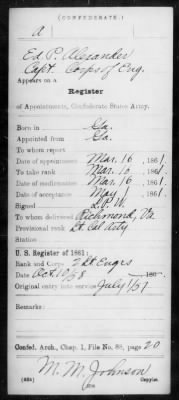 (CONFEDERATE.)
A
Ed. P. Alexander
Capt. Corps of Eng.
Appears on a
Register
of Appointments, Confederate States Army.
Born in Ga.
Appointed from Ga.
To whom report
Date of appointment Mar. 16, 1861.
To take rank Mar. 16, 1861.
Date of confirmation Mar. 16, 1861.
Date of acceptance May 1, 1861.
Signed L.P.W.
To whom delivered Richmond, Va
Provisional rank Lt. Col. Arty
Station
U. S. Register of 1861:
Rank and Corps 2 Lt Engrs
Date Oct. 10/58, 186 .
Original entry into service July 1/57
Remarks:
Confed. Arch., Chap. 1, File No. 88, page 20
M. M. Johnson
Copyist.